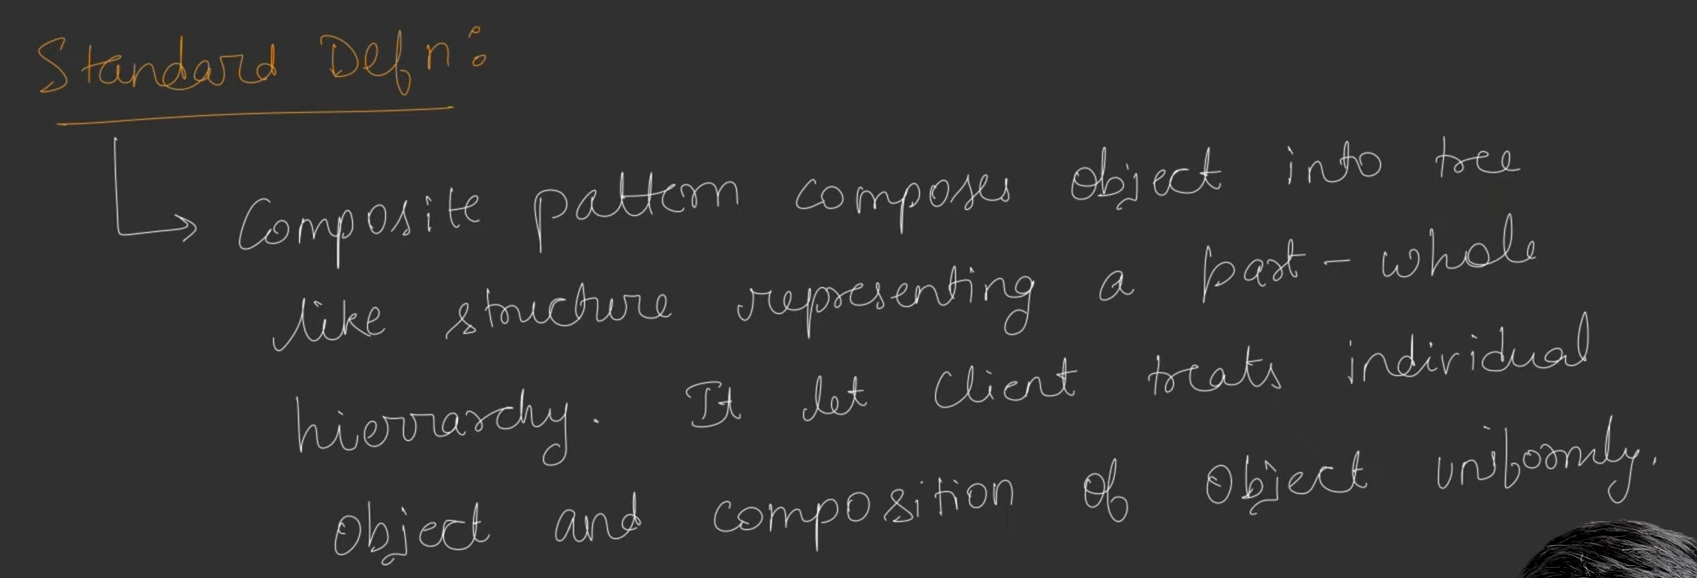 Standard Defn:
Composite pattern composes object into tree
like structure representing a part - whole
hierrarchy. It let Client treats individual
object and composition of object uniformly.